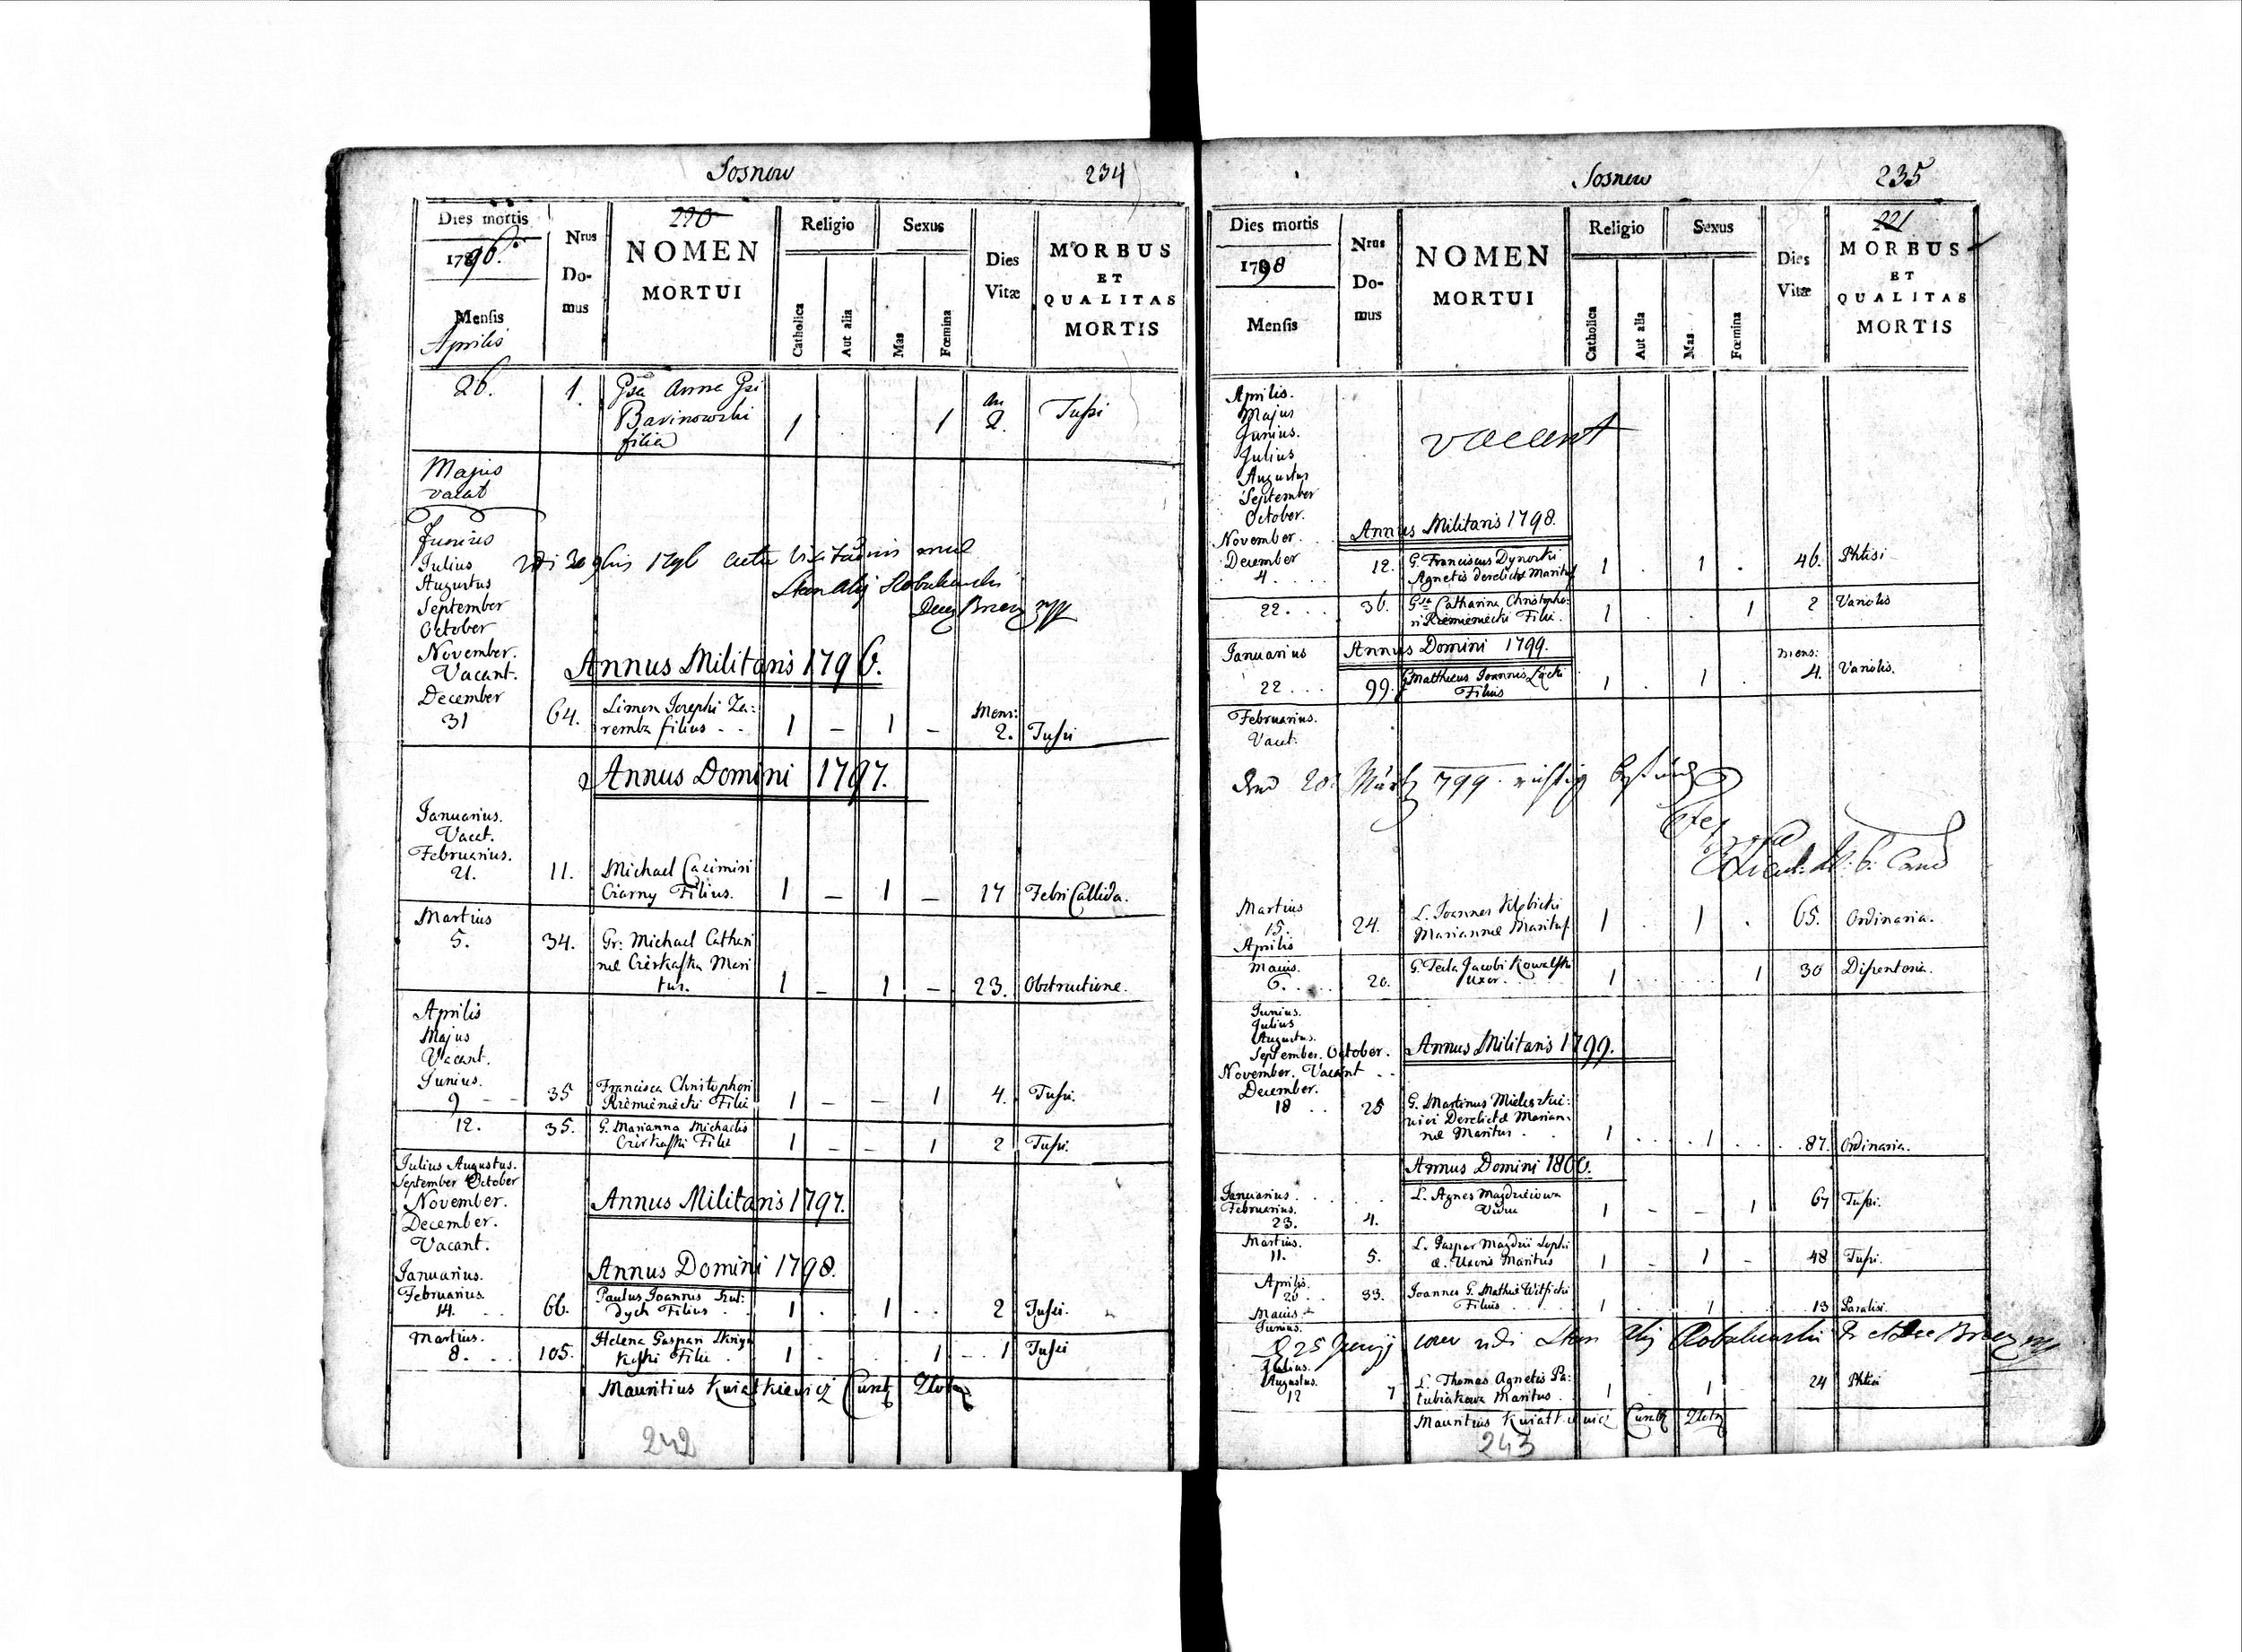 Sosnow 234
Dies mortis
1796.
Mensis
Aprilis
Nrus
Do-
mus
220
NOMEN
MORTUI
Religio
Catholica
Aut alia
Sexus
Mas
Fœmina
Dies
Vitæ
MORBUS
ET
QUALITAS
MORTIS
26. 1. Gsa Anna Gsi
Barinowski
filia 1 . . 1 an 2. Tussi
Majus
vacat
Junius
Julius
Augustus
September
October
November.
Vacant.
vidi 30 9bris 1796
Annus Militaris 1796.
December
31 64. Simon Josephi Za:
remba filius - - 1 – 1 – Mens: 2. Tussi
Annus Domini 1797.
Januarius.
Vacat.
Februarius.
21. 11. Michael Cazimiri
Czarny Filius. 1 – 1 – 17 Febri Callida.
Martius
5. 34. Gr: Michael Cathari
næ Czerkaska Mari
tus. 1 – 1 – 23. Obstructione.
Aprilis
Majus
Vacant.
Junius.
9 - - 35 Francisca Christophori
Rzemieniecki Filia 1 – – 1 4. Tussi.
12. 35. G. Marianna Michaelis
Czerkaski Filia 1 – – 1 2 Tussi.
Julius Augustus.
September October
November.
December.
Vacant.
Annus Militaris 1797.
Annus Domini 1798.
Januarius.
Februarius.
14. 66. Paulus Joannis
dych Filius . 1 . 1 . . 2 Tussi.
Martius.
8. 105. Helena Gaspari
Filia . 1 . . 1 1 Tussi
Mauritius Kwiatkiewicz
242
Sosnow 235
Dies mortis
1798
Mensis
Nrus
Do-
mus
NOMEN
MORTUI
Religio
Catholica
Aut alia
Sexus
Mas
Fœmina
Dies
Vitæ
221
MORBUS
ET
QUALITAS
MORTIS
Aprilis.
Majus
Junius.
Julius
Augustus
September
October.
vacant
Annus Militaris 1798.
November.
December
4. 12. G. Franciscus Dynorski
Agnetis derelictæ Maritus 1 . 1 . 46. Phtisi
22. 36. Gsa Catharina Christopho:
ri Rzemieniecki Filia. 1 . . 1 2 Variolis
Januarius Annus Domini 1799.
22 99. G Mathæus Joannis Łącki
Filius 1 . 1 . mens: 4. Variolis.
Februarius.
Vacat.
Den 20. Märtz 799. richtig
Martius
15. 24. L. Joannes
Mariannæ Maritus 1 . 1 . 65. Ordinaria.
Aprilis
Maius.
6. 20. G. Tecla Jacobi Kowalski
Uxor. 1 . . 1 30 Disentoria.
Junius.
Julius
Augustus.
September. October.
November. Vacant
Annus Militaris 1799.
December.
18 25 G. Martinus
Derelictæ Marian:
næ Maritus . 1 . 1 . 87. Ordinaria.
Annus Domini 1800.
Januarius.
Februarius.
23. 4. L. Agnes Magdziciowa
Vidua 1 – – 1 67 Tussi.
Martius.
11. 5. L. Gaspar Magdzii Sophi
æ. Uxoris Maritus 1 – 1 – 48 Tussi.
Aprilis.
20 33. Joannes G. Mathiæ Witficki
Filius 1 . 1 . 13 Paralisi.
Maius.
Junius.
25 Junij
Julius.
Augustus.
12 7 L. Thomas Agnetis Pa:
lubiakowa Maritus . 1 1 24 Phtisi
Mauritius Kwiatkiewicz
243